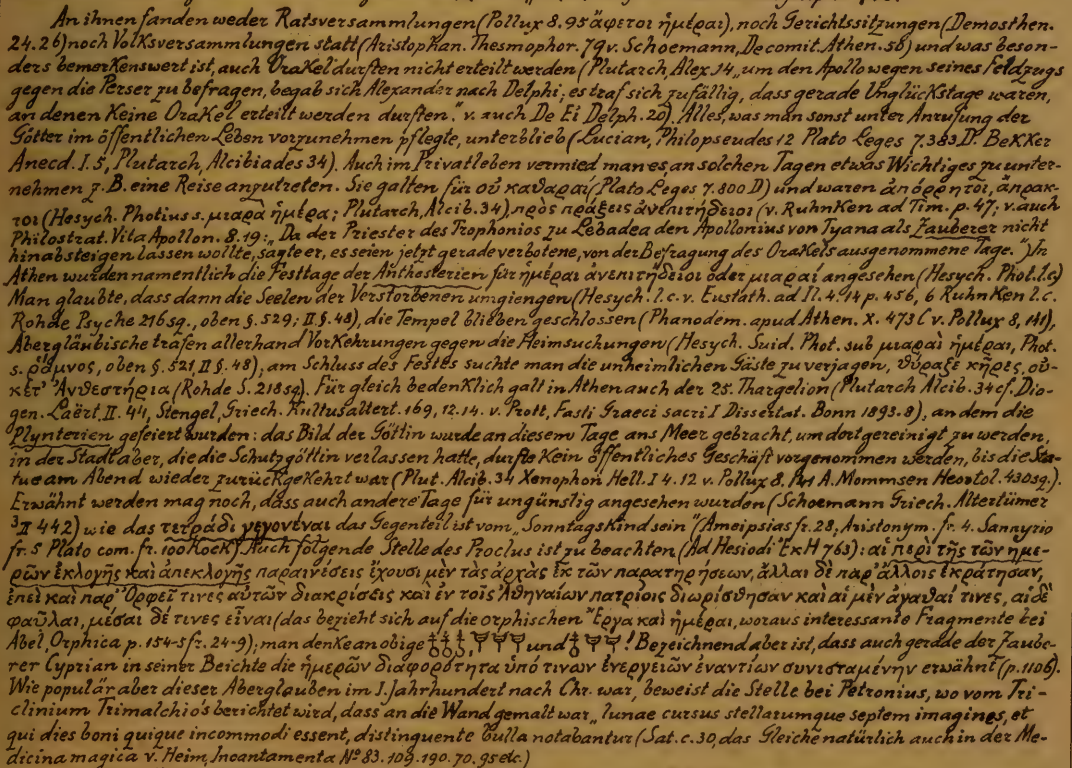 An ihnen fanden weder Ratsversammlungen (Pollux 8.95 ἄφετοι ἡμέραι), noch Gerichtssitzungen (Demosthen.
24.26) noch Volksversammlungen statt (Aristophan. Thesmophor. 79 v. Schoemann, De comit. Athen. 50) und was beson-
ders bemerkenswert ist, auch Orakel durften nicht erteilt werden (Plutarch, Alex 14 „um den Apollo wegen seines Feldzugs
gegen die Perser zu befragen, begab sich Alexander nach Delphi; es traf sich zufällig, dass gerade Unglückstage waren,
an denen keine Orakel erteilt werden durften." v. auch De Ei Delph. 20). Alles, was man sonst unter Anrufung der
Götter im öffentlichen Leben vorzunehmen pflegte, unterblieb (Lucian, Philopseudes 12 Plato Leges 7.383 D. Bekker
Anecd. I.5, Plutarch, Alcibiades 34). Auch im Privatleben vermied man es, an solchen Tagen etwas Wichtiges zu unter-
nehmen z.B. eine Reise anzutreten. Sie galten für οὐ καθαραί (Plato Leges 7.800 D) und waren ἀπόρρητοι, ἄπρακ-
τοι (Hesych. Photius s. μιαρὰ ἡμέρα; Plutarch, Alcib. 34) πρὸς πράξεις ἀνεπιτήδειοι (v. Ruhnken ad Tim. p. 47; v. auch
Philostrat. Vita Apollon. 8.19: „Da der Priester des Trophonios zu Lebadea den Apollonius von Tyana als Zauberer nicht
hinabsteigen lassen wollte, sagte er, es seien jetzt gerade verbotene, von der Befragung des Orakels ausgenommene Tage.") In
Athen wurden namentlich die Festtage der Anthesterien für ἡμέραι ἀνεπιτήδειοι oder μιαραί angesehen (Hesych. Phot. l.c.)
Man glaubte, dass dann die Seelen der Verstorbenen umgiengen (Hesych. l.c. v. Eustath. ad Il. 4.14 p. 456, 6 Ruhnken l.c.
Rohde Psyche 216 sq., oben §. 529; II §. 48), die Tempel blieben geschlossen (Phanodem. apud Athen. X. 473 C v. Pollux 8, 141),
Abergläubische trafen allerhand Vorkehrungen gegen die Heimsuchungen (Hesych. Suid. Phot. sub μιαραὶ ἡμέραι, Phot.
s. ῥάμνος, oben §. 521, II §. 48); am Schluss des Festes suchte man die unheimlichen Gäste zu verjagen, θύραζε κῆρες, οὐ-
κετ' Ἀνθεστήρια (Rohde S. 218 sq). Für gleich bedenklich galt in Athen auch der 25. Thargelion (Plutarch Alcib. 34 cf. Dio-
gen. Laërt. II. 44, Stengel, Griech. Kultusaltert. 169, 12.14. v. Prott, Fasti Graeci sacri I Dissertat. Bonn 1893. 8), an dem die
Plynterien gefeiert wurden: das Bild der Göttin wurde an diesem Tage ans Meer gebracht, um dort gereinigt zu werden,
in der Stadt aber, die die Schutzgöttin verlassen hatte, durfte kein öffentliches Geschäft vorgenommen werden, bis die Sta-
tue am Abend wieder zurückgekehrt war (Plut. Alcib. 34 Xenophon Hell. I 4. 12 v. Pollux 8. A. Mommsen Heortol. 430 sq.).
Erwähnt werden mag noch, dass auch andere Tage für ungünstig angesehen wurden (Schoemann Griech. Altertümer
³II 442) wie das τετράδι γεγονέναι das Gegenteil ist vom „Sonntagskind sein" (Ameipsias fr. 28, Aristonym. fr. 4. Sannyrio
fr. 5 Plato com. fr. 100 Kock). Auch folgende Stelle des Proclus ist zu beachten (Ad Hesiodi ἜκΗ 763): αἱ περὶ τῆς τῶν ἡμε-
ρῶν ἐκλογῆς καὶ ἀπεκλογῆς παραινέσεις ἔχουσι μὲν τὰς ἀρχὰς ἐκ τῶν παρατηρήσεων, ἄλλαι δὲ παρ' ἄλλοις ἐκράτησαν,
ἐπεὶ καὶ παρ' Ὀρφεῖ τινες αὐτῶν διακρίσεις καὶ ἐν τοῖς Ἀθηναίων πατρίοις διωρίσθησαν καὶ αἱ μὲν ἀγαθαί τινες, αἱ δὲ
φαῦλαι, μέσαι δέ τινες εἶναι (das bezieht sich auf die orphischen Ἔργα καὶ ἡμέραι, woraus interessante Fragmente bei
Abel, Orphica p. 154-5 fr. 24-9); man denke an obige und ! Bezeichnend aber ist, dass auch gerade der Zaube-
rer Cyprian in seiner Beichte die ἡμερῶν διαφορότητα ὑπό τινων ἐνεργειῶν ἐναντίων συνισταμένην erwähnt (p. 1106).
Wie populär aber dieser Aberglauben im I. Jahrhundert nach Chr. war, beweist die Stelle bei Petronius, wo vom Tri-
clinium Trimalchio's berichtet wird, dass an die Wand gemalt war „lunae cursus stellarumque septem imagines, et
qui dies boni quique incommodi essent, distinguente bulla notabantur (Sat. c. 30, das Gleiche natürlich auch in der Me-
dicina magica v. Heim, Incantamenta Nº 83. 109. 190. 70. 95 etc.)